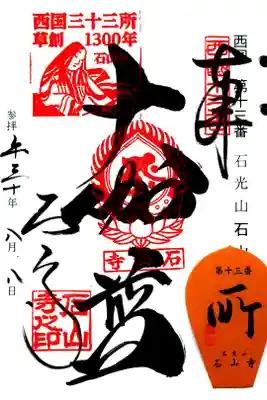 西国 第十三番 石光山 石山
奉拝
西国三十三所
草創1300年
石山
大伽藍
石山寺
石 寺
石山寺之印
参拝 平三十年 八月 八日
第十三番
石光山
石山寺